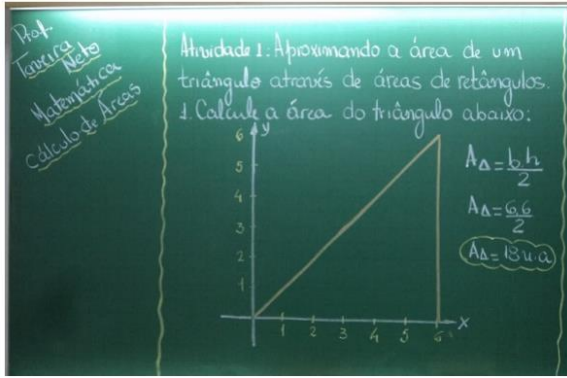 Prof.
Taveira
Neto
Matemática
Cálculo de Áreas
Atividade 1: Aproximando a área de um
triângulo através de áreas de retângulos.
1. Calcule a área do triângulo abaixo:
y
6
5
4
3
2
1
1 2 3 4 5 6 x
A∆ = b.h/2
A∆ = 6.6/2
A∆ = 18 u.a